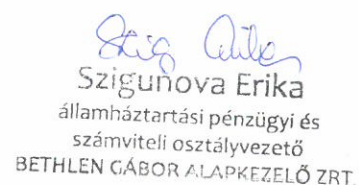 Szigunova Erika
államháztartási pénzügyi és
számviteli osztályvezető
BETHLEN GÁBOR ALAPKEZELŐ ZRT.